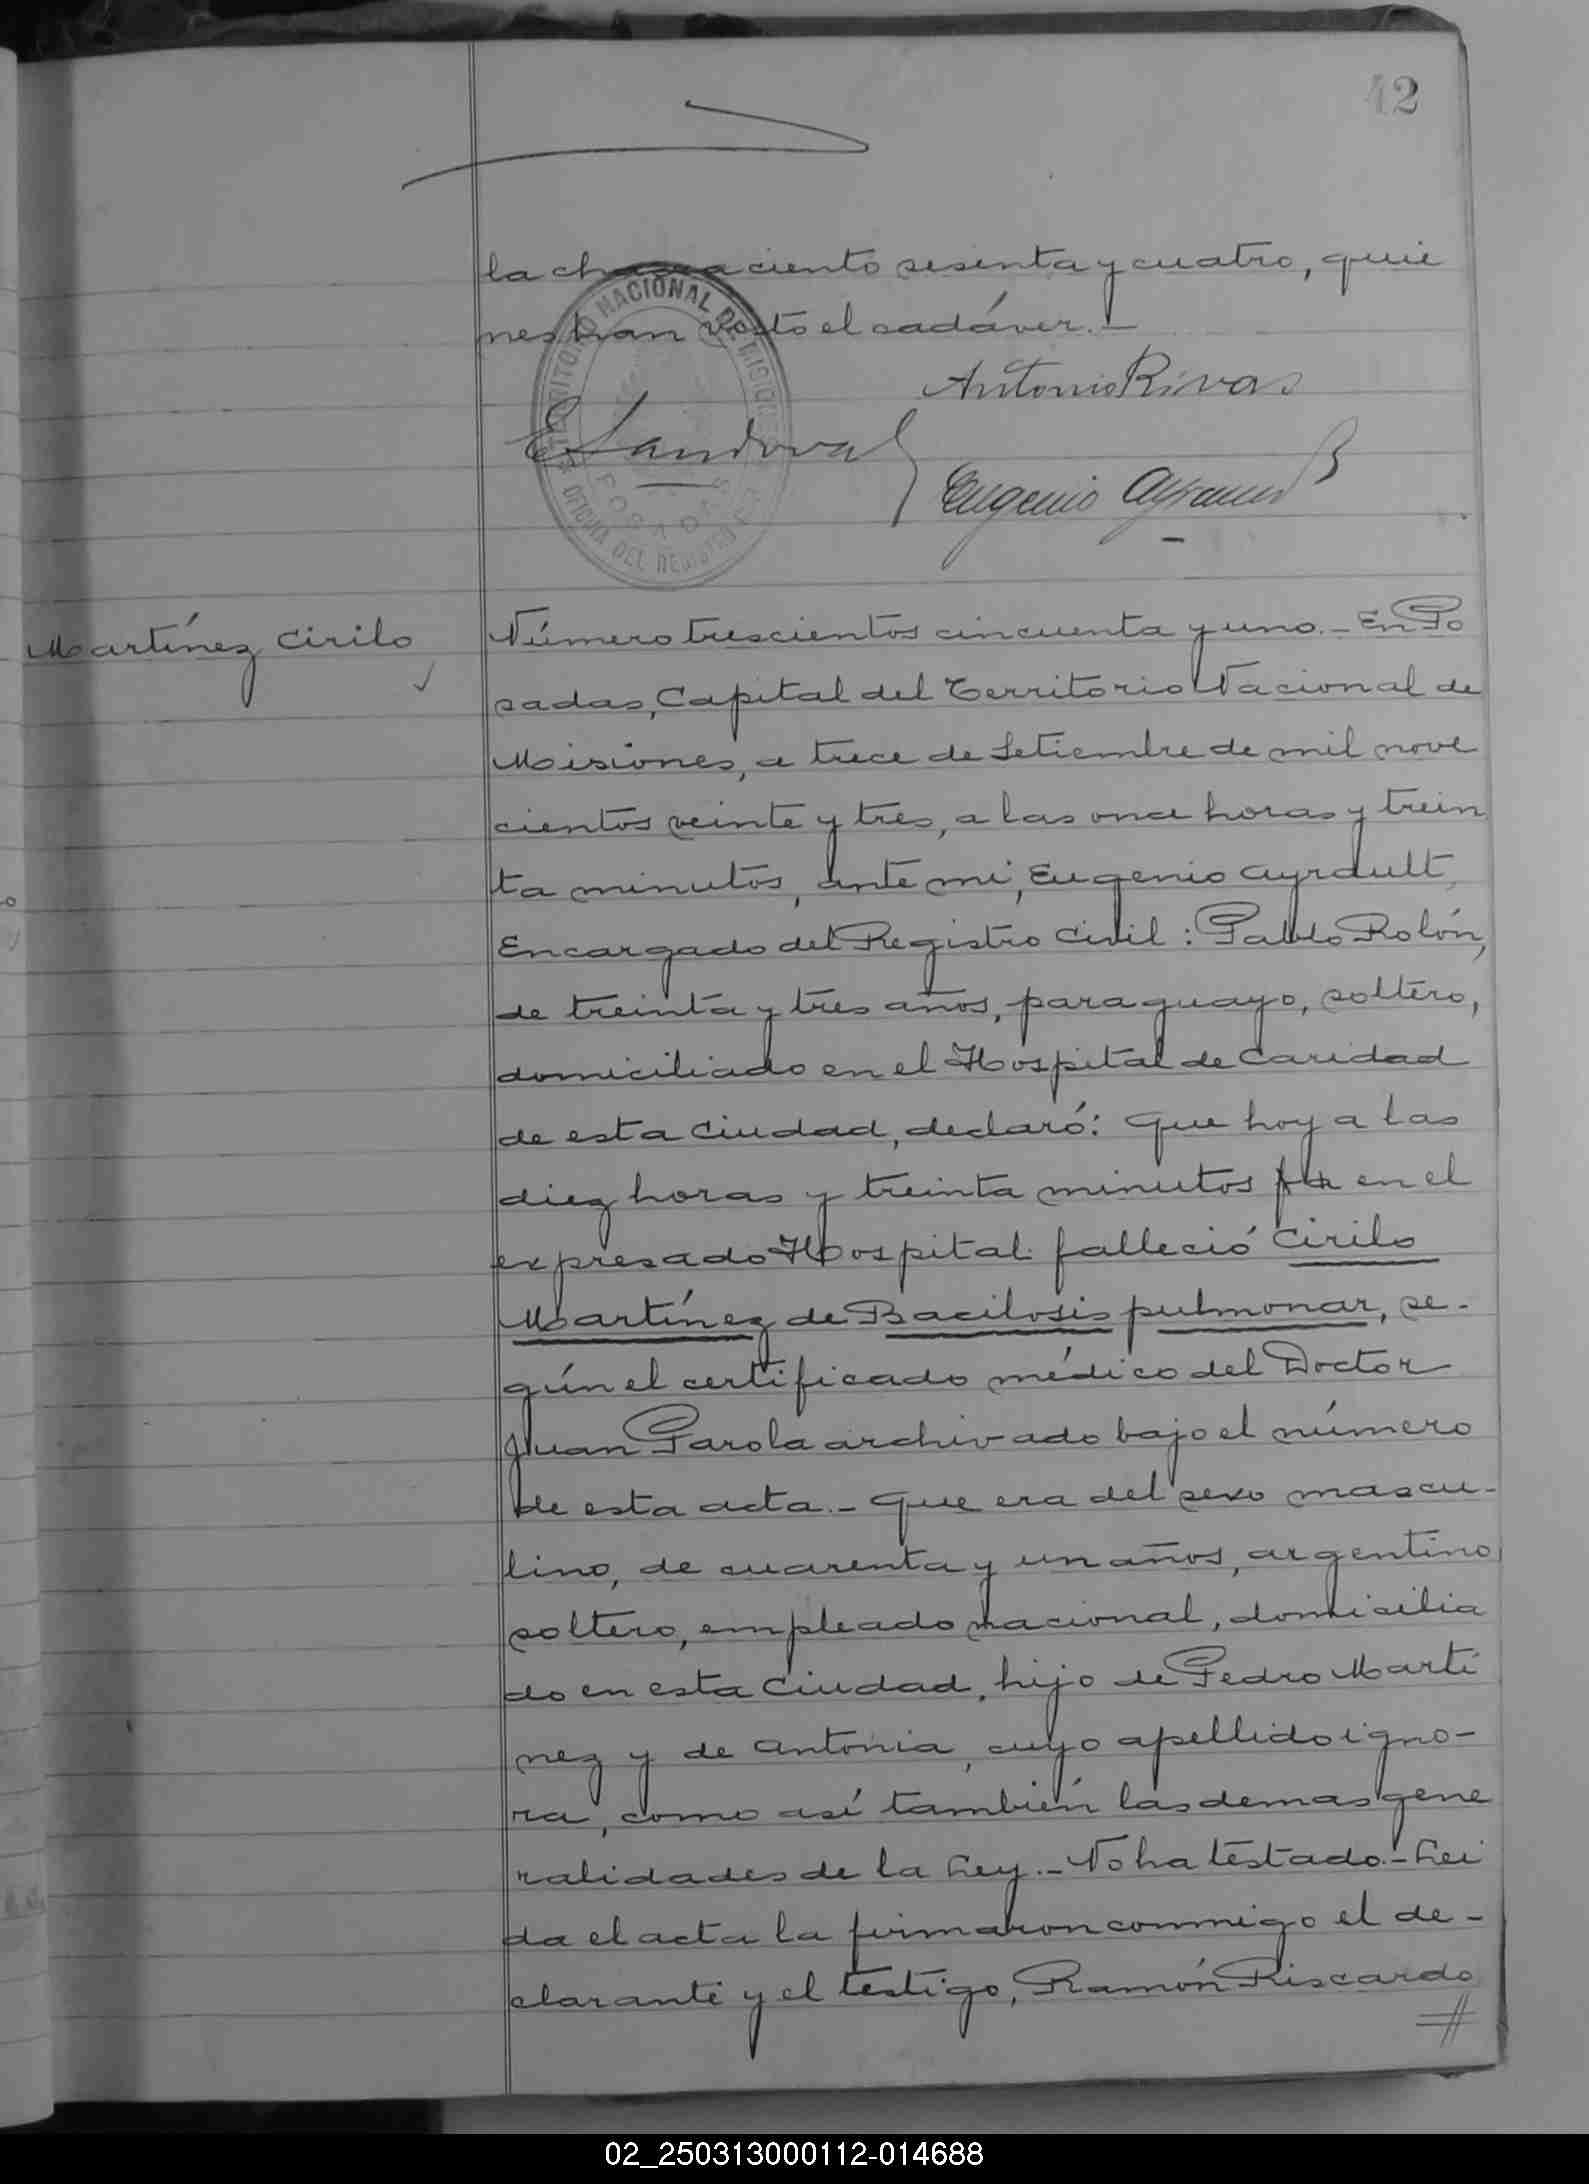 42
la chacra ciento sesenta y cuatro, quie
nes han visto el cadáver.—
Antonio Rivas
E Sandoval
Eugenio Ayrault
TERRITORIO NACIONAL DE MISIONES
POSADAS
OFICINA DEL REGISTRO
Martínez Cirilo
Número trescientos cincuenta y uno.— En Po
sadas, Capital del Territorio Nacional de
Misiones, a trece de Setiembre de mil nove
cientos veinte y tres, a las once horas y trein
ta minutos, ante mi, Eugenio Ayrault,
Encargado del Registro Civil: Pablo Rolón,
de treinta y tres años, paraguayo, soltero,
domiciliado en el Hospital de Caridad
de esta Ciudad, declaró: Que hoy a las
diez horas y treinta minutos en el
expresado Hospital falleció Cirilo
Martínez de Bacilosis pulmonar, se-
gún el certificado médico del Doctor
Juan Parola archivado bajo el número
de esta acta.— Que era del sexo mascu-
lino, de cuarenta y un años, argentino,
soltero, empleado nacional, domicilia
do en esta Ciudad, hijo de Pedro Martí
nez y de Antonia, cuyo apellido igno-
ra, como así también las demas gene
ralidades de la Ley.— No ha testado.— Lei
da el acta la firmaron conmigo el de-
clarante y el testigo, Ramón Riscardo
02_250313000112-014688